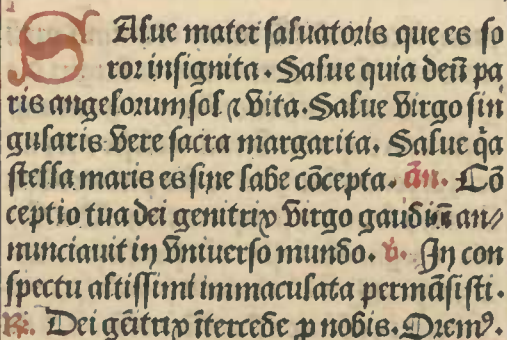 SAlue mater saluatoris que es so
ror insignita. Salue quia deū pa
ris angelorum sol ⁊ vita. Salue virgo sin
gularis vere sacra margarita. Salue q̄a
stella maris es sine labe cōcepta. añ. Cō
ceptio tua dei genitrix virgo gaudiū an⸗
nunciauit in vniuerso mundo. v̔. In con
spectu altissimi immaculata permāsisti.
℟. Dei gēitrix ītercede ꝓ nobis. Oremꝰ.